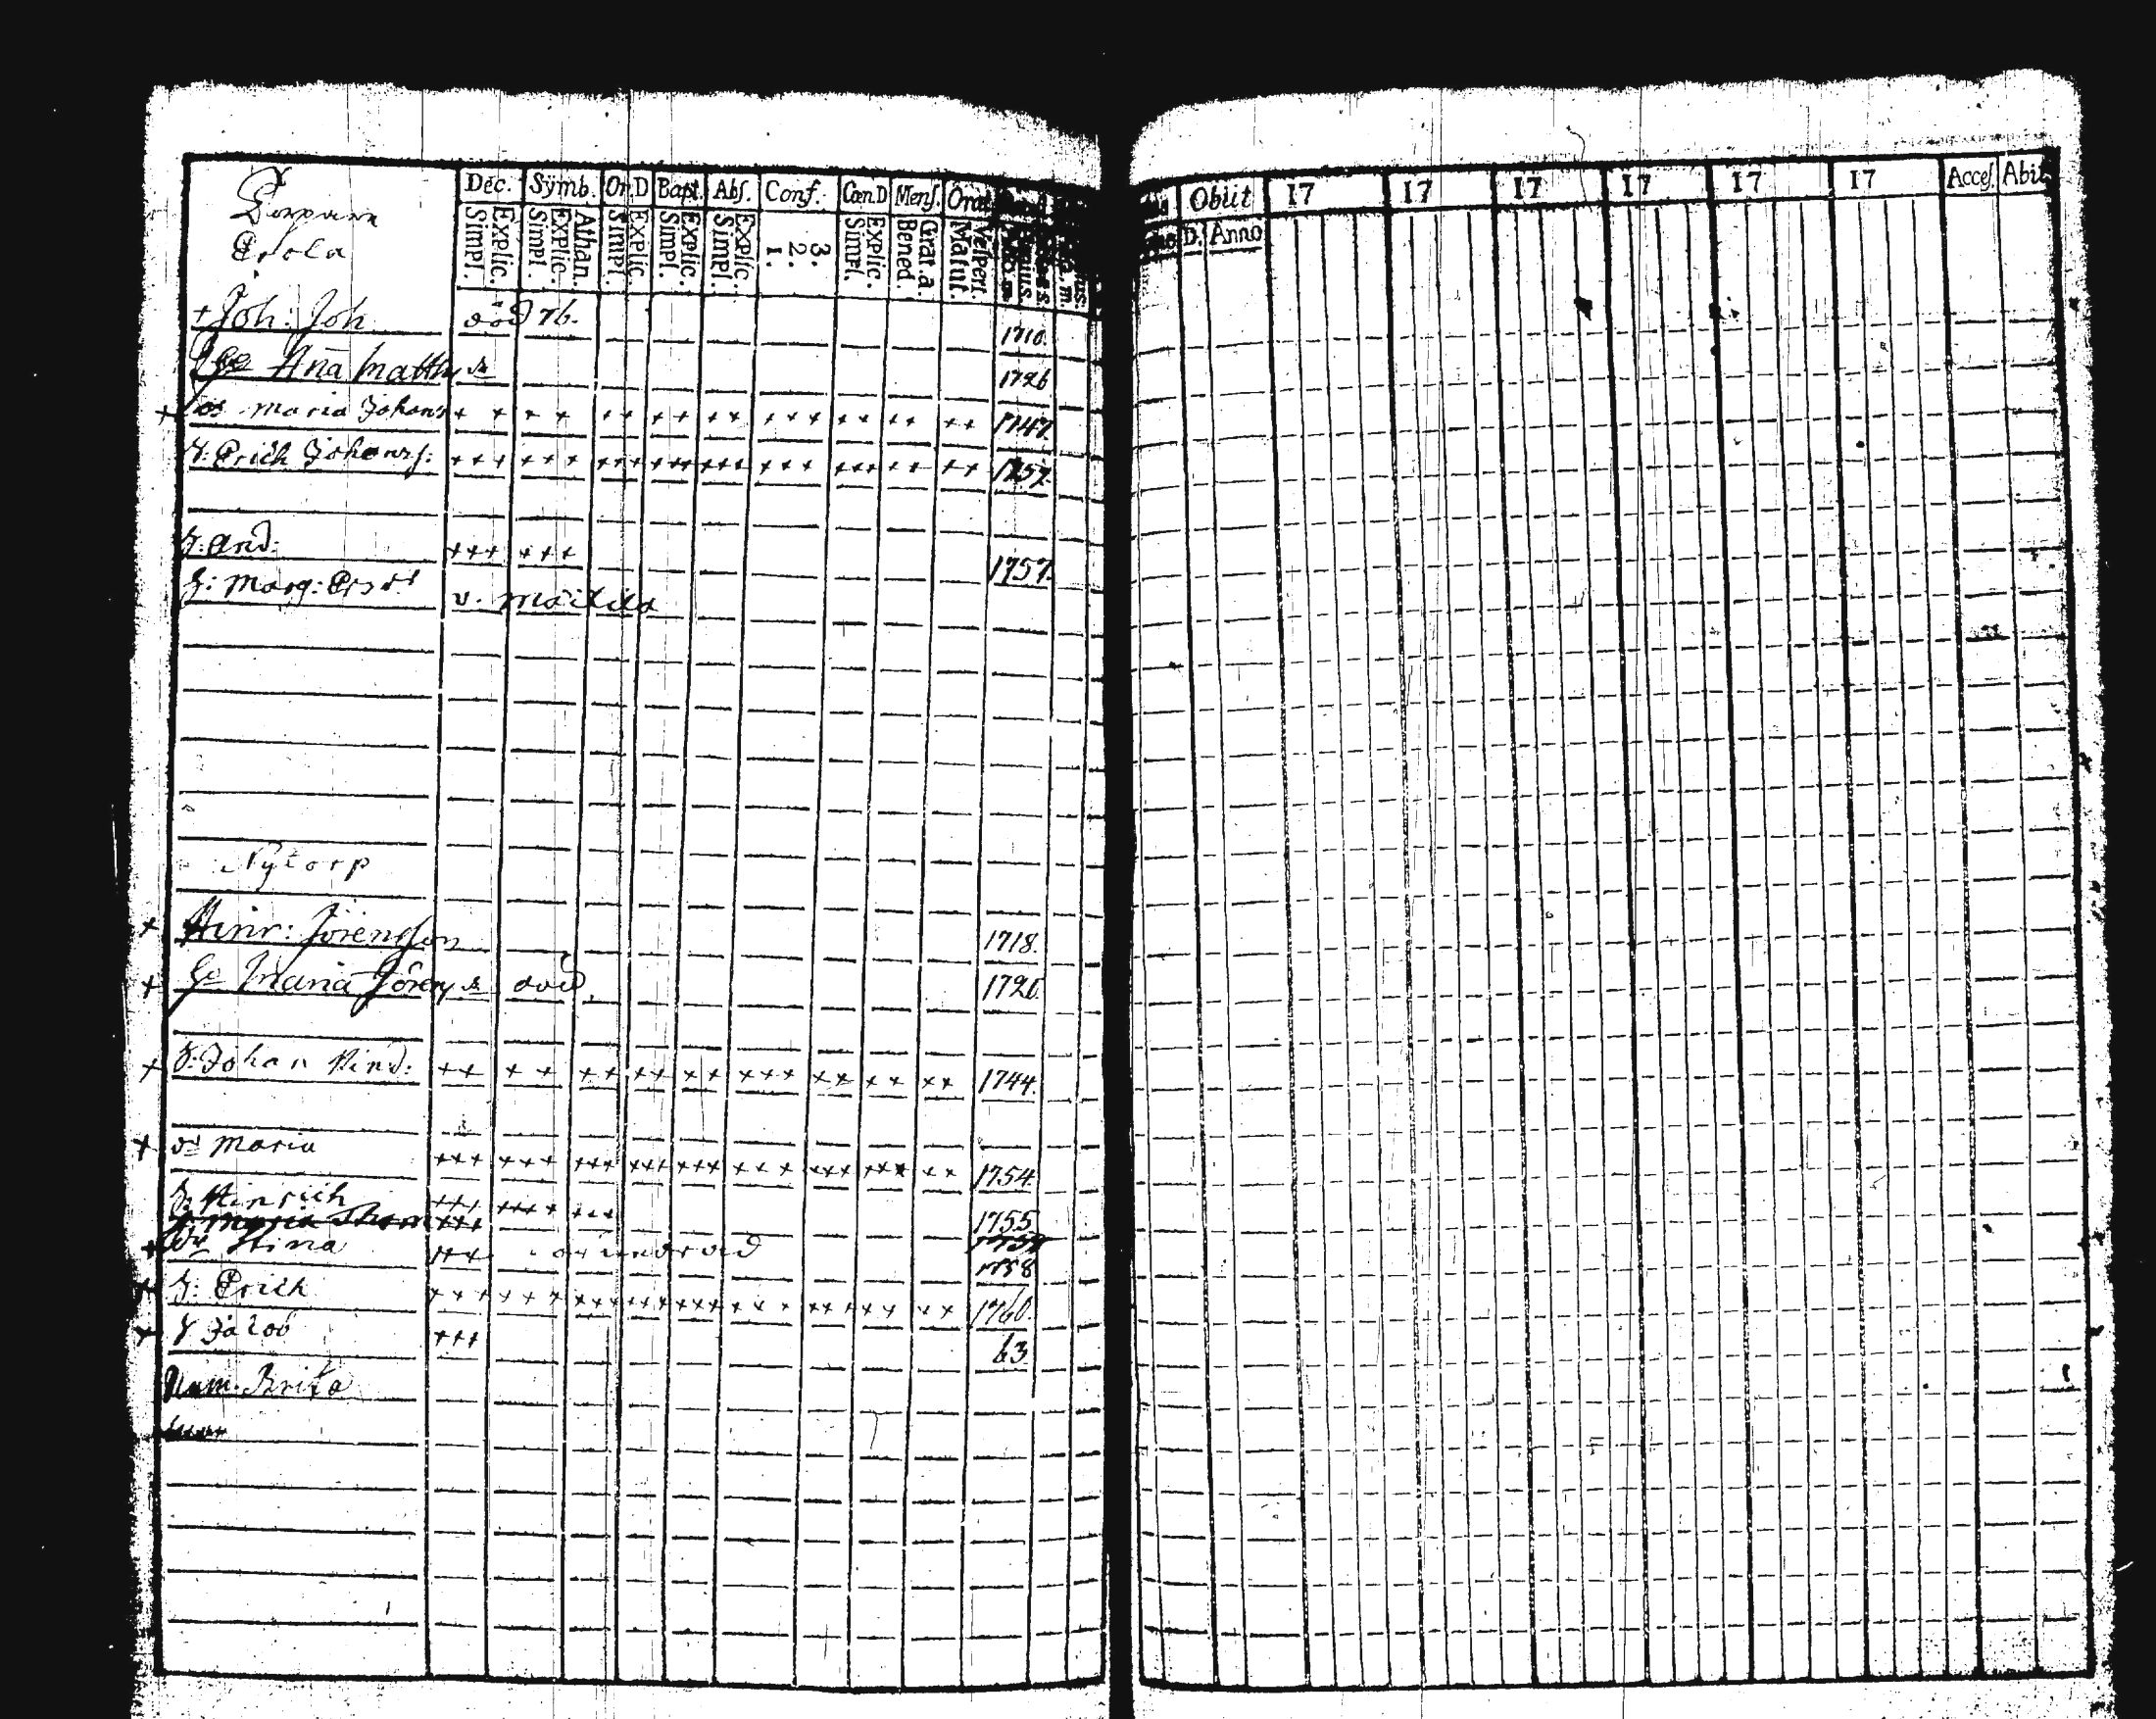 Torpare
Dec. Symb. Or.D Bapt. Abs. Conf. Cœn.D Mens. Orat.
Explic. Simpl. Athan. Explic. Simpl. Explic. Simpl. Explic. Simpl. Explic. Simpl. 3. 2. 1. Explic. Simpl. Grat.a. Bened. Vespert. Matut.
Obiit 17 17 17 17 17 17 Acces. Abit
D. Anno
+ Joh: Joh död 76. 1710.
Ana Matths 1726
+ Maria Johans + + + + ++ ++ ++ +++ ++ ++ ++ 1747.
S: Erich Johans: +++ +++ +++ +++ +++ +++ +++ ++ ++ 1757.
S: And: +++ +++ 1757.
H: Marg: v. Maitila
Nytorp
+ Hinr: Jörensson 1718.
+ Maria Jörens död 1720.
+ S: Johan Hind: ++ + + ++ ++ ++ +++ ++ ++ ++ 1744.
+ Maria +++ +++ +++ +++ +++ +++ +++ +++ ++ 1754.
S: Hinrich +++ ++++ +++ 1755
Maria Thom +++
+ Stina +++ 1758
+ S: Erich +++ +++ +++ +++ +++ +++ +++ ++ ++ 1760.
+ S Jacob +++ 63
Brita